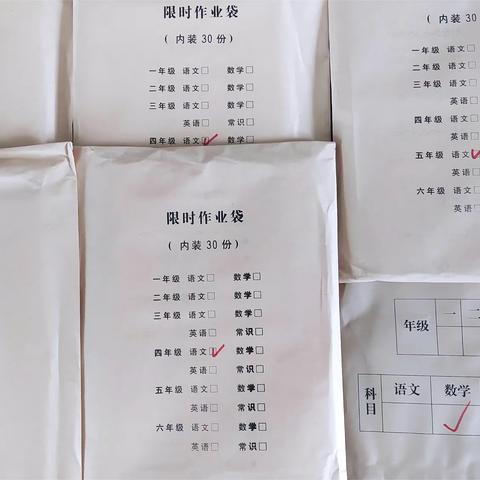 限时作业袋
（内装30份）
一年级 语文□ 数学□
二年级 语文□ 数学□
三年级 语文□ 数学□
英语□ 常识□
四年级 语文☑ 数学□
（内装30
一年级 语文□
二年级 语文□
三年级 语文□
英语□
四年级 语文□
英语□
五年级 语文☑
英语□
六年级 语文□
英语□
限时作业袋
（内装30份）
一年级 语文□ 数学□
二年级 语文□ 数学□
三年级 语文□ 数学□
英语□ 常识□
四年级 语文☑ 数学□
英语□ 常识□
五年级 语文□ 数学□
英语□ 常识□
六年级 语文□ 数学□
英语□ 常识□
年级 一 二
科目 语文 数学
✓